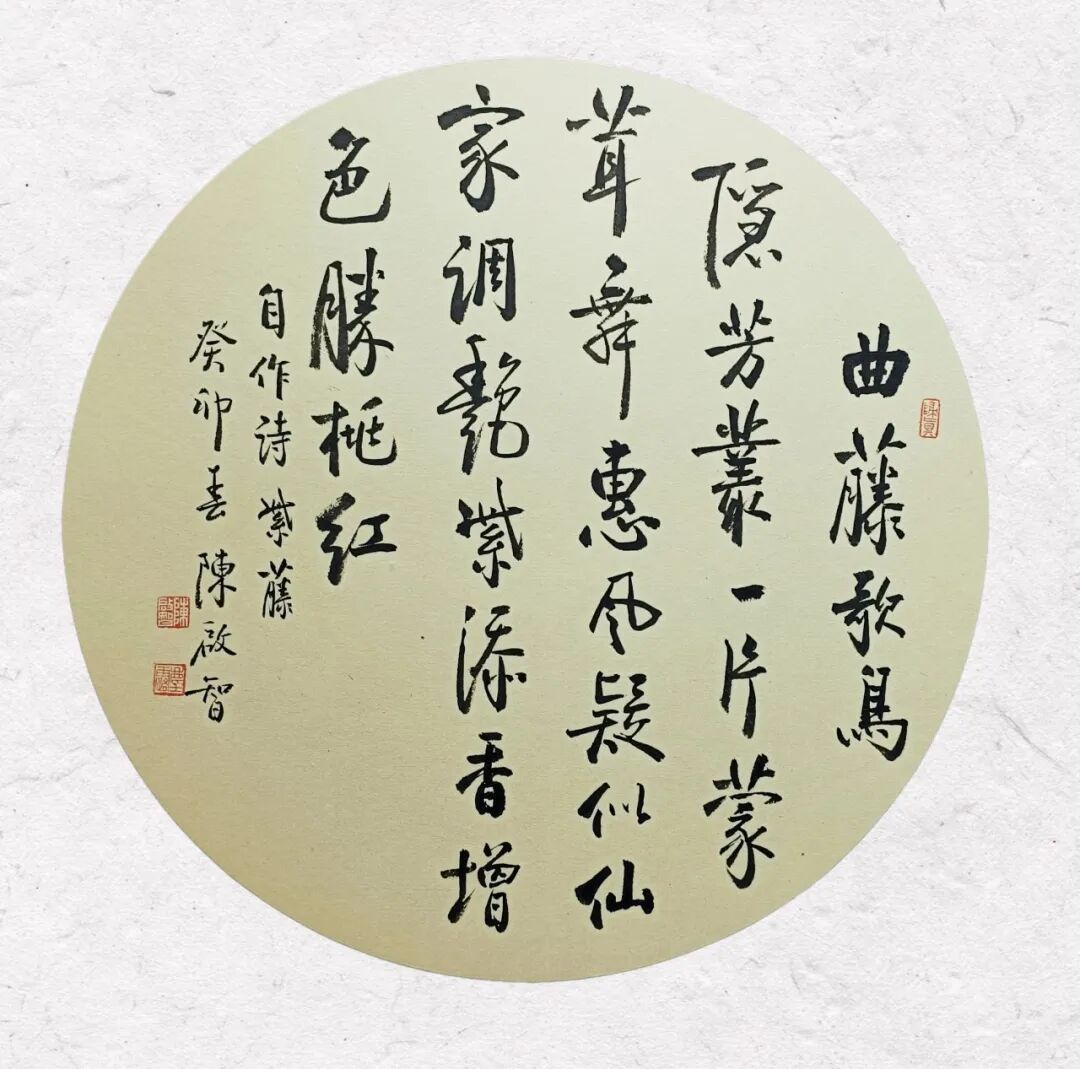 曲藤歌鳥
隐芳叢一片蒙
茸舞惠风疑似仙
家调艷紫添香增
色勝桃红
自作诗紫藤
癸卯春陳啟智